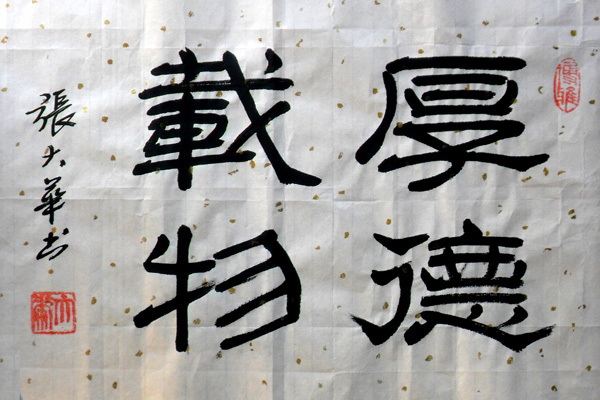 厚德
載物
張大華书